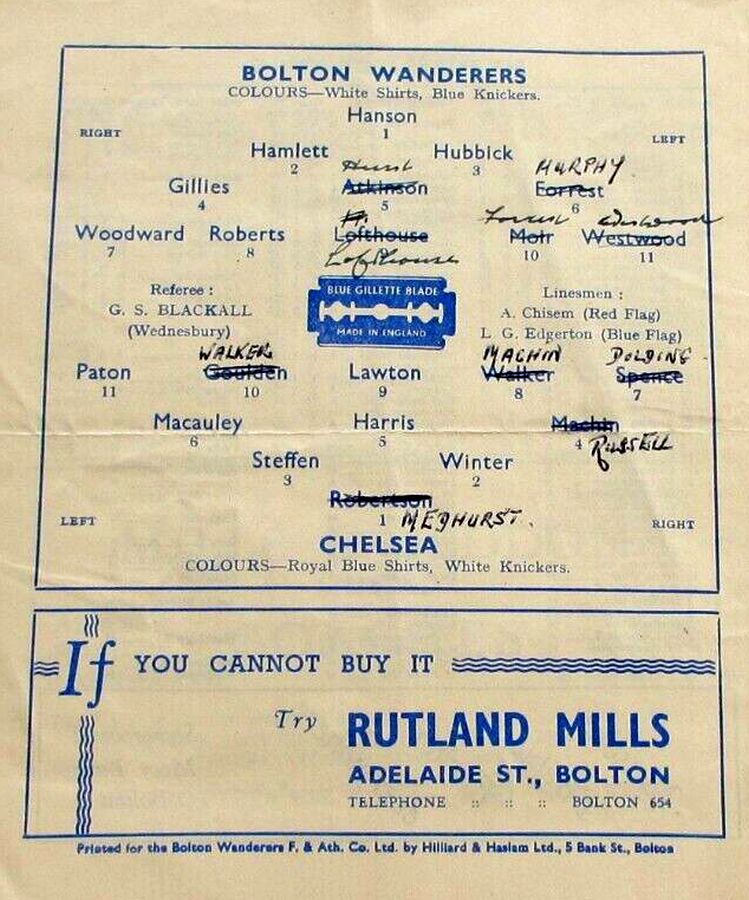 BOLTON WANDERERS
COLOURS—White Shirts, Blue Knickers.
Hanson
1
RIGHT LEFT
Hamlett Hubbick
2 3
Hurst MURPHY
Gillies Atkinson Forrest
4 5 6
Forrest Westwood
Woodward Roberts Lofthouse Moir Westwood
7 8 10 11
Lofthouse
BLUE GILLETTE BLADE
MADE IN ENGLAND
Referee :
G. S. BLACKALL
(Wednesbury)
Linesmen :
A. Chisem (Red Flag)
L. G. Edgerton (Blue Flag)
WALKER MACHIN DOLDING
Paton Goulden Lawton Walker Spence
11 10 9 8 7
Macauley Harris Machin
6 5 4 RUSSELL
Steffen Winter
3 2
Robertson
1 MEDHURST.
LEFT RIGHT
CHELSEA
COLOURS—Royal Blue Shirts, White Knickers.
If YOU CANNOT BUY IT
Try RUTLAND MILLS
ADELAIDE ST., BOLTON
TELEPHONE :: :: :: BOLTON 654
Printed for the Bolton Wanderers F. & Ath. Co. Ltd. by Hilliard & Haslam Ltd., 5 Bank St., Bolton